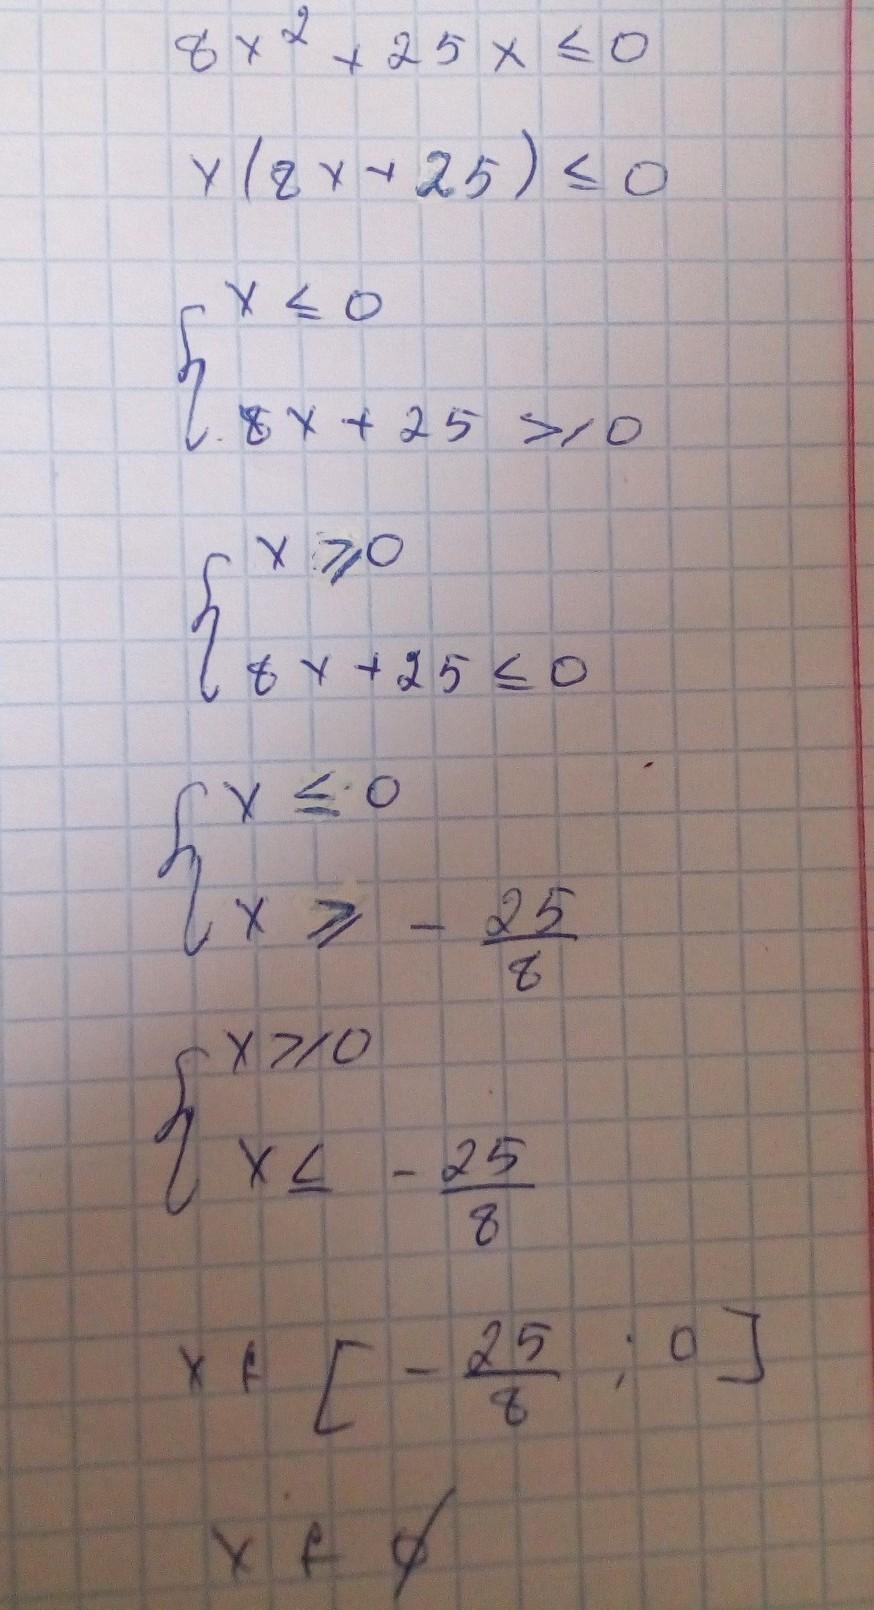 8x² + 25x ≤ 0
x(8x + 25) ≤ 0
{ x ≤ 0
8x + 25 ≥ 0
{ x ≥ 0
8x + 25 ≤ 0
{ x ≤ 0
x ≥ - 25/8
{ x ≥ 0
x ≤ - 25/8
x ∈ [ - 25/8 ; 0 ]
x ∈ ∅